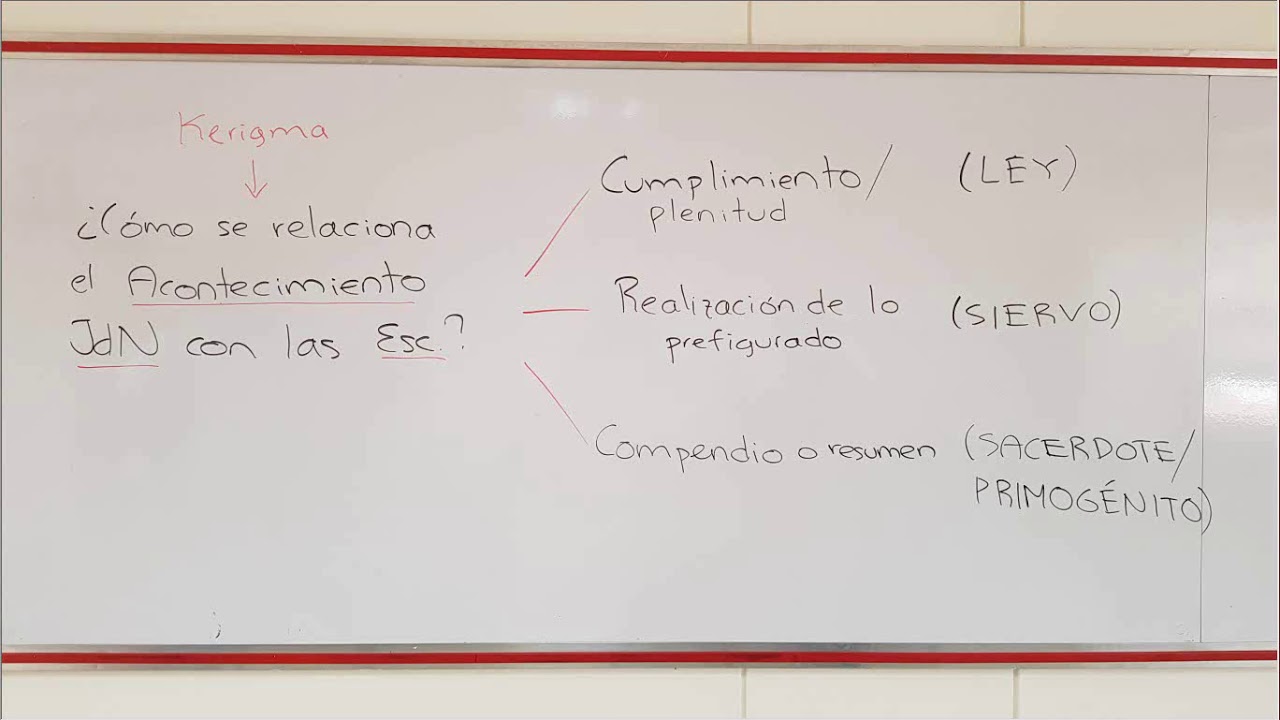 Kerigma
¿Cómo se relaciona
el Acontecimiento
JdN con las Esc.?
Cumplimiento/ (LEY)
plenitud
Realización de lo (SIERVO)
prefigurado
Compendio o resumen (SACERDOTE/
PRIMOGÉNITO)